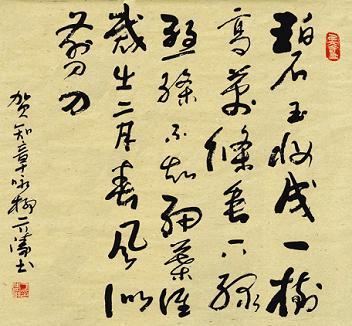 碧玉妆成一树
高萬條垂下绿
丝絛不知细葉谁
裁出二月春风似
剪刀
贺知章咏柳 书